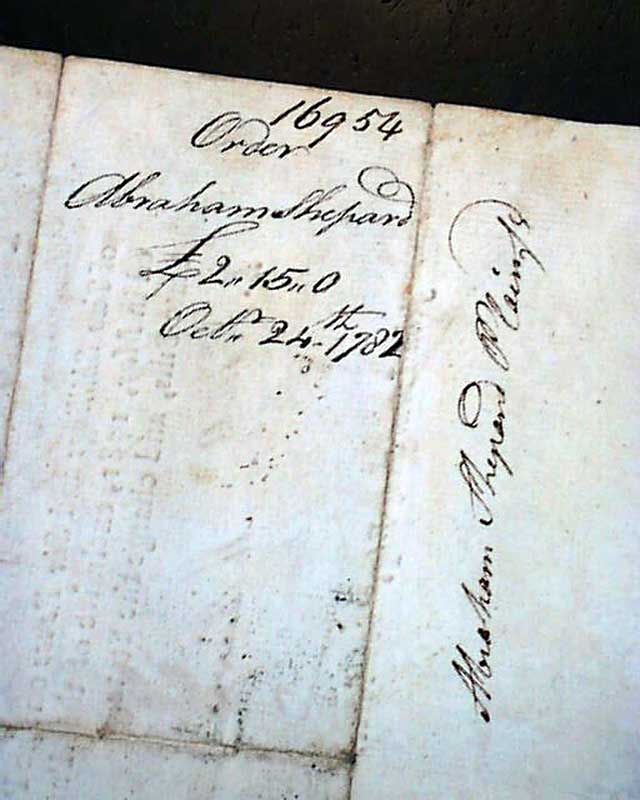 16954
Order
Abraham Shepard
£2,,15,,0
Octr. 24th 1782
Abraham Shepard Plainfd